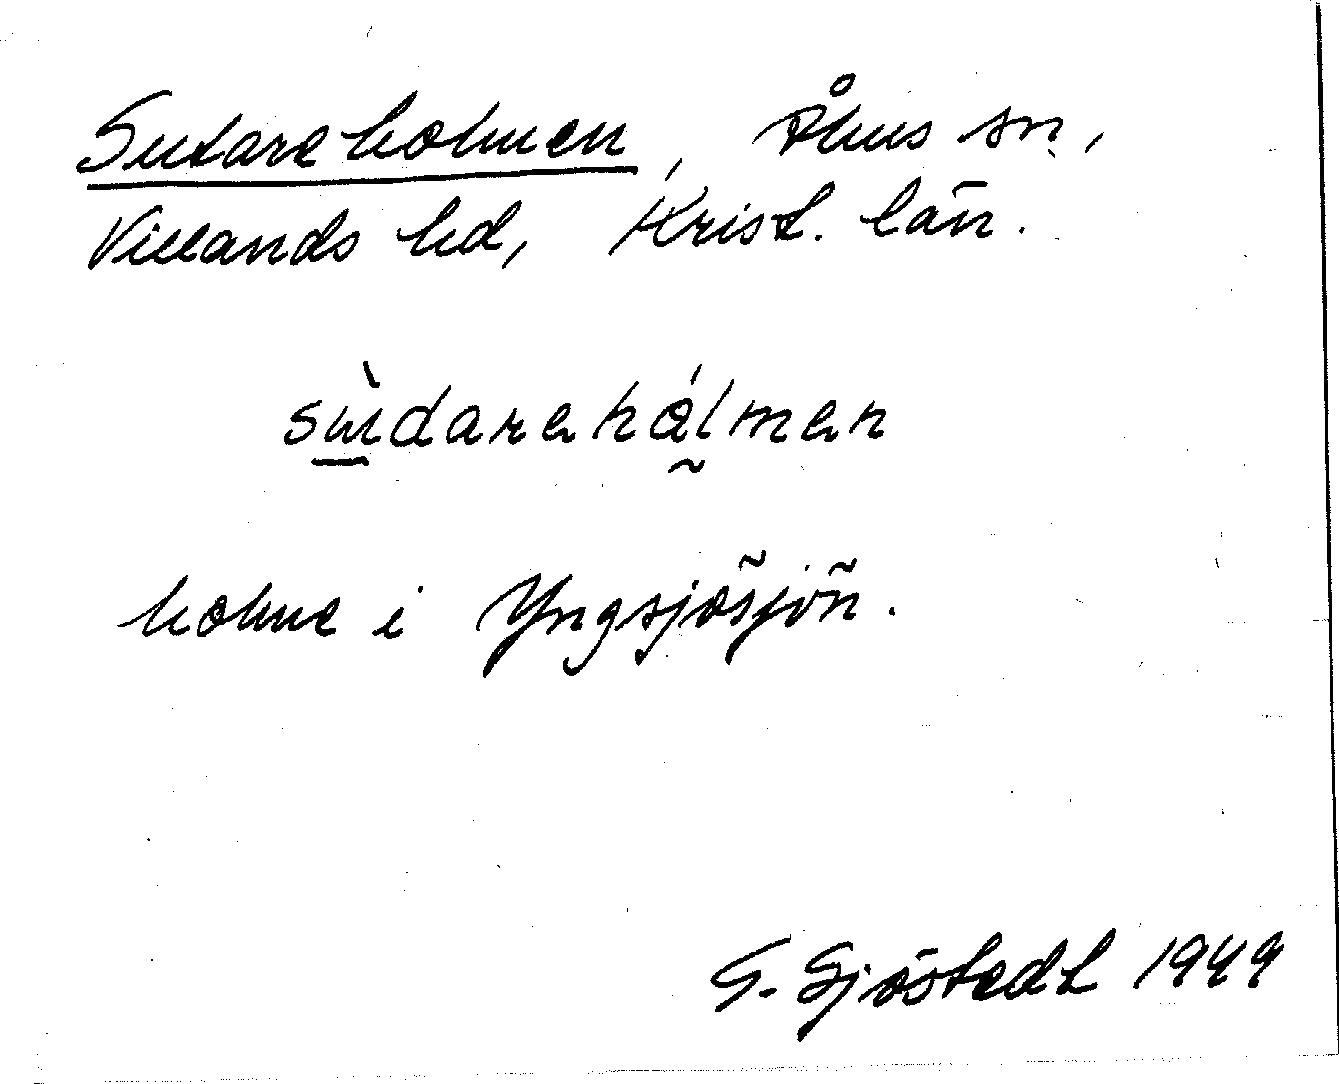 Sutareholmen, Åhus sn,
Villands hd, Krist. län.
sɯ̀darehålmen
holme i Yngsjösjön.
G. Sjöstedt 1949